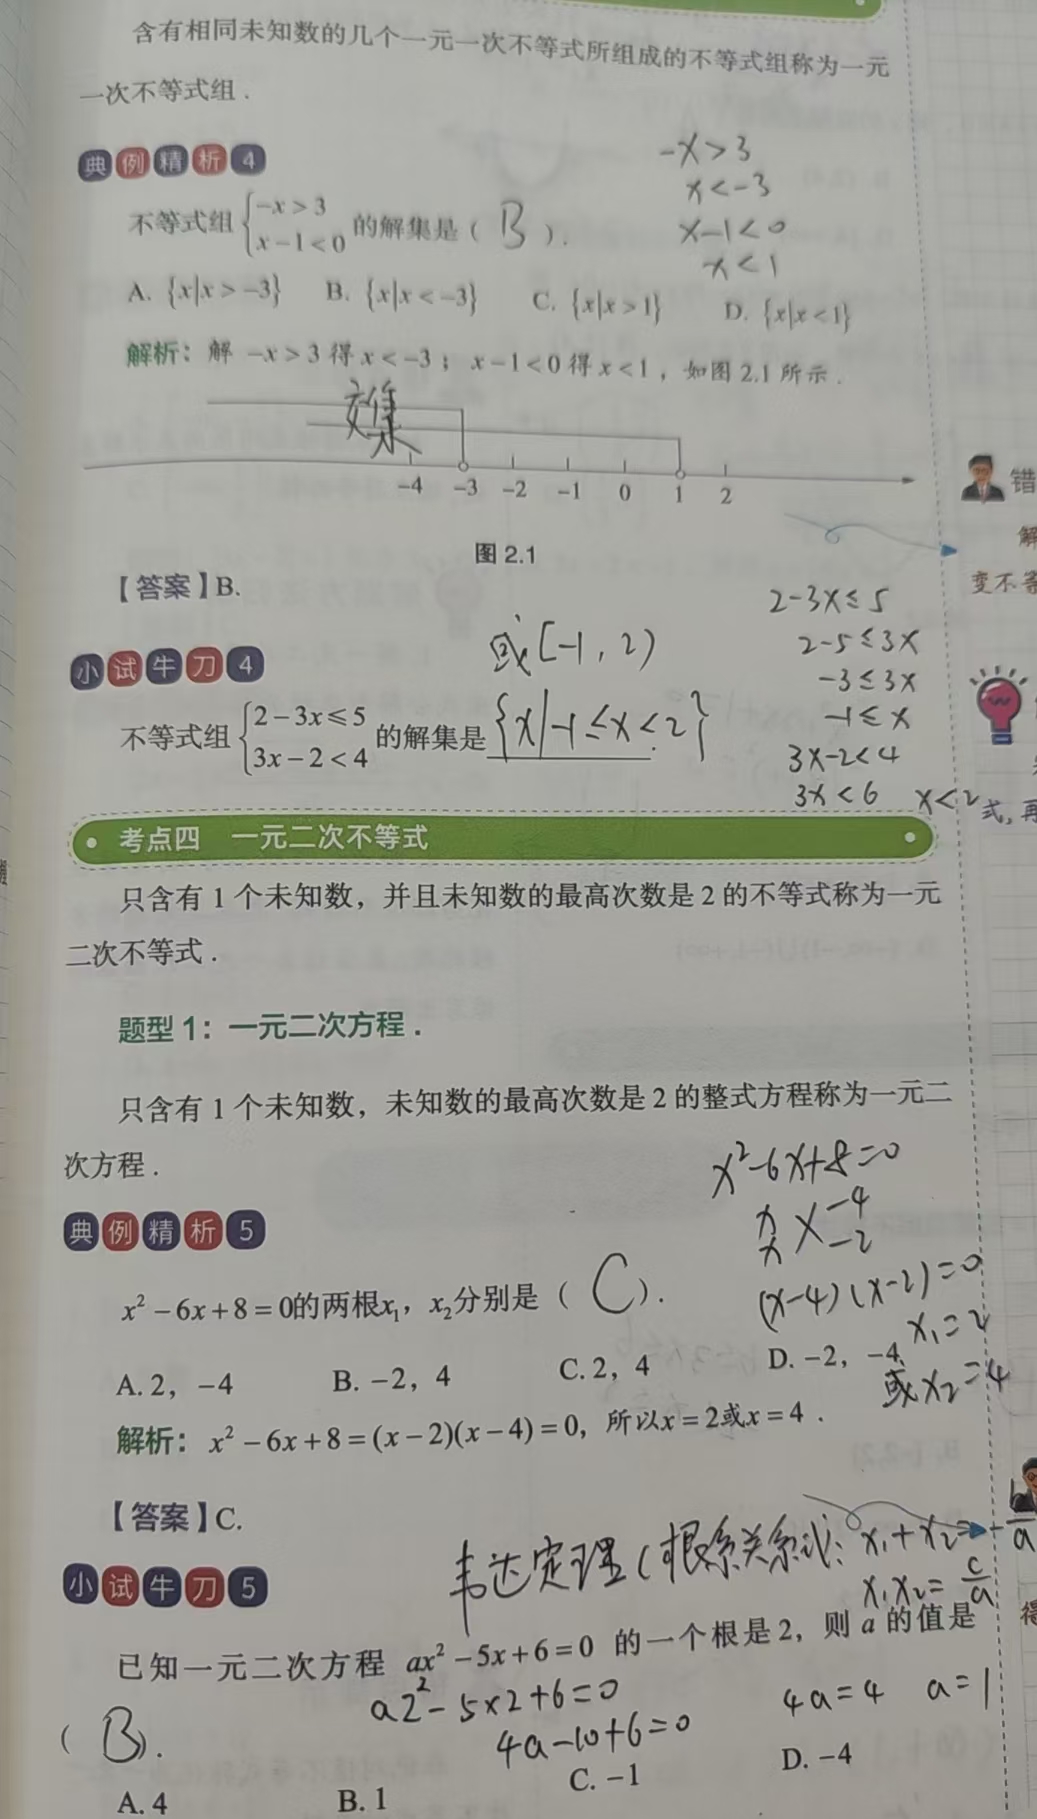 含有相同未知数的几个一元一次不等式所组成的不等式组称为一元
一次不等式组.
典例精析4
-x>3
x<-3
不等式组{-x>3 x-1<0 的解集是( B ).
x-1<0
x<1
A. {x|x>-3} B. {x|x<-3} C. {x|x>1} D. {x|x<1}
解析：解 -x>3 得 x<-3；x-1<0 得 x<1，如图 2.1 所示.
交集
-4 -3 -2 -1 0 1 2
错
图 2.1
解
【答案】B.
变不等
2-3x≤5
或[-1,2)
2-5≤3x
小试牛刀4
-3≤3x
不等式组{2-3x≤5 3x-2<4 的解集是{x|-1≤x<2}
-1≤x
3x-2<4
3x<6 x<2
式，再
考点四 一元二次不等式
只含有 1 个未知数，并且未知数的最高次数是 2 的不等式称为一元
二次不等式.
题型 1：一元二次方程.
只含有 1 个未知数，未知数的最高次数是 2 的整式方程称为一元二
次方程.
x²-6x+8=0
典例精析5
x -4
x -2
x²-6x+8=0的两根x₁，x₂分别是( C ).
(x-4)(x-2)=0
x₁=2
A. 2，-4 B. -2，4 C. 2，4 D. -2，-4
或x₂=4
解析：x²-6x+8=(x-2)(x-4)=0，所以x=2或x=4.
【答案】C.
韦达定理(根系关系式: x₁+x₂=-b/a
小试牛刀5
x₁x₂=c/a
得
已知一元二次方程 ax²-5x+6=0 的一个根是 2，则 a 的值是
a2²-5×2+6=0
4a=4 a=1
( B ).
4a-10+6=0
A. 4 B. 1 C. -1 D. -4